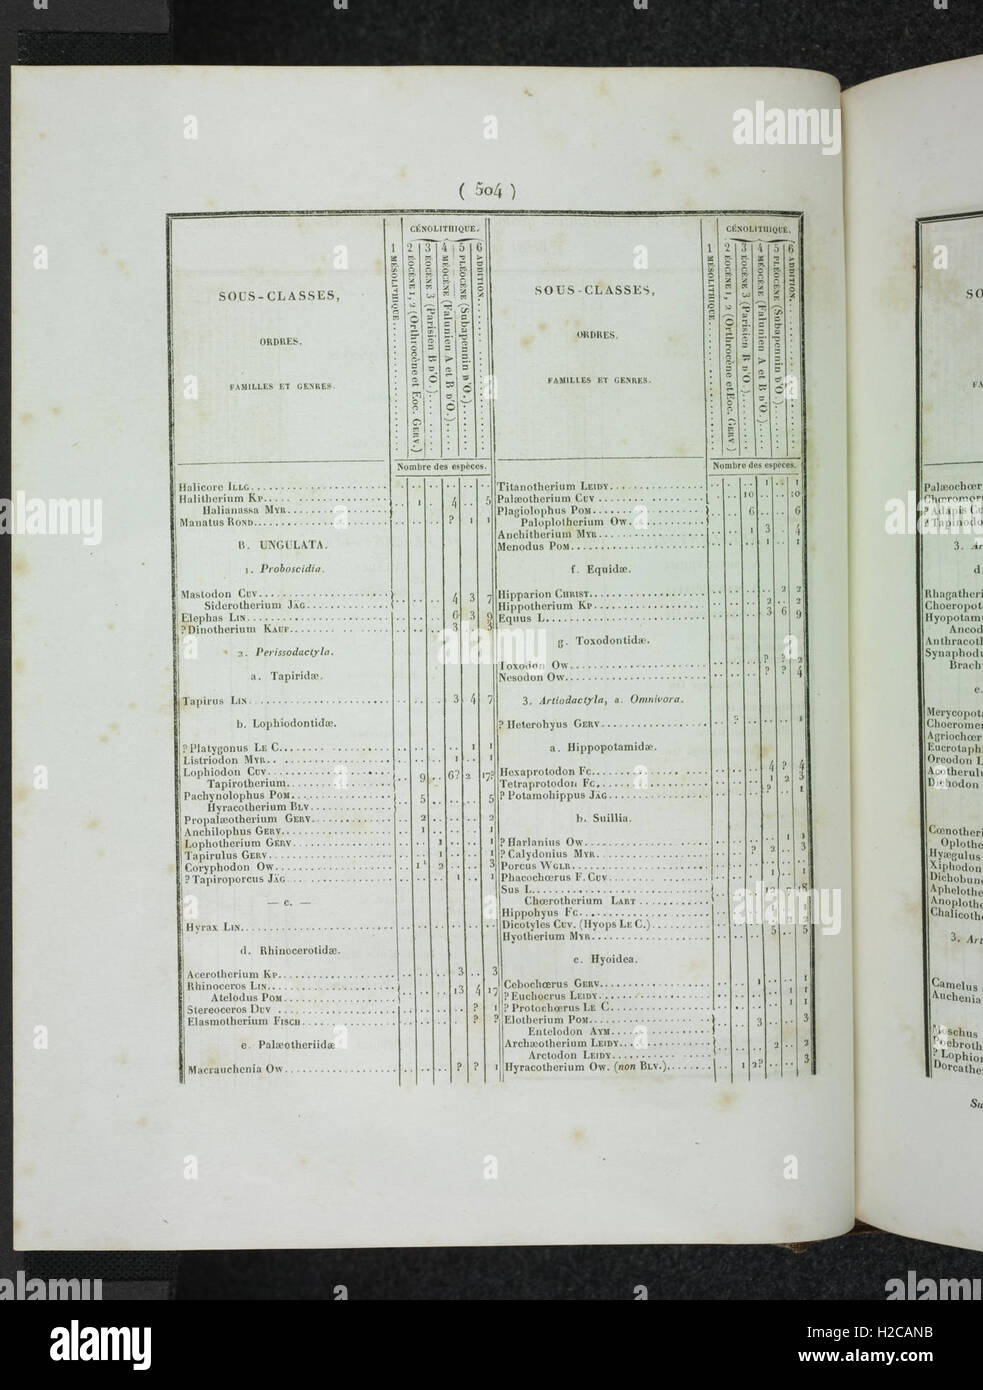 ( 504 )
SOUS-CLASSES,
ORDRES.
FAMILLES ET GENRES.
1 MÉSOLITHIQUE
CÉNOLITHIQUE.
2 ÉOCÈNE 1, 2 (Orthrocène et Éoc. GERV.)
3 ÉOCÈNE 3 (Parisien B D'O.)
4 MÉOCÈNE (Falunien A et B D'O.)
5 PLÉOCÈNE (Subapennin D'O.)
6 ADDITION.
Nombre des espèces.
Halicore ILLG
Halitherium KP. 1 4 5
Halianassa MYR
Manatus ROND ? 1 1
B. UNGULATA.
1. Proboscidia.
Mastodon CUV 4 3 7
Siderotherium JÄG
Elephas LIN 6 3 9
?Dinotherium KAUP 3 3
2. Perissodactyla.
a. Tapiridæ.
Tapirus LIN 3 4 7
b. Lophiodontidæ.
?Platygonus LE C. 1 1
Listriodon MYR 1 1
Lophiodon CUV 9 6? 2 17?
Tapirotherium
Pachynolophus POM 5 5
Hyracotherium BLV
Propalæotherium GERV 2 2
Anchilophus GERV 1 1
Lophotherium GERV 1 1
Tapirulus GERV 1 1
Coryphodon OW 1 2 3
?Tapiroporcus JÄG 1 1
— c. —
Hyrax LIN
d. Rhinocerotidæ.
Acerotherium KP 3 3
Rhinoceros LIN 13 4 17
Atelodus POM
Stereoceros DUV ? 1
Elasmotherium FISCH ? ?
e. Palæotheriidæ
Macrauchenia OW ? ? 1
SOUS-CLASSES,
ORDRES.
FAMILLES ET GENRES.
1 MÉSOLITHIQUE
CÉNOLITHIQUE.
2 ÉOCÈNE 1, 2 (Orthrocène et Éoc. GERV.)
3 ÉOCÈNE 3 (Parisien B D'O.)
4 MÉOCÈNE (Falunien A et B D'O.)
5 PLÉOCÈNE (Subapennin D'O.)
6 ADDITION.
Nombre des espèces.
Titanotherium LEIDY 1 1
Palæotherium CUV 10 10
Plagiolophus POM 6 6
Paloplotherium OW
Anchitherium MYR 1 3 4
Menodus POM 1 1
f. Equidæ.
Hipparion CHRIST 2 2
Hippotherium KP 2 2
Equus L. 3 6 9
g. Toxodontidæ.
Toxodon OW ? ? 2
Nesodon OW ? ? 4
3. Artiodactyla, a. Omnivora.
? Heterohyus GERV ? 1
a. Hippopotamidæ.
Hexaprotodon FC. 4 ? 4
Tetraprotodon FC. 1 2 3
? Potamohippus JÄG ? 1
b. Suillia.
? Harlanius OW 1 1
? Calydonius MYR ? 2 3
Porcus WGLR
Phacochœrus F. CUV 1 1
Sus L. 18
Chœrotherium LART
Hippohyus FC. 1
Dicotyles CUV. (Hyops LE C.) 2 2
Hyotherium MYR 5 5
c. Hyoidea.
Cebochœrus GERV 1 1
? Euchœrus LEIDY 1 1
? Protochœrus LE C. 1 1
Elotherium POM 3 3
Entelodon AYM
Archæotherium LEIDY 2 2
Arctodon LEIDY
Hyracotherium OW. (non BLV.) 1 2? 3
Palæochœr
?Adapis
?Tapinodo
Rhagatheri
Choeropot
Hyopotam
Ancod
Anthracoth
Synaphodu
Brach
Merycopot
Choeromer
Agriochœr
Eucrotaph
Oreodon L
Dichodon
Cænotheri
Oplothe
Hyægulus
Xiphodon
Dichobun
Aphelothe
Anoplothe
Chalicothe
Camelus
Auchenia
Moschus
Poebroth
? Lophio
Dorcathe
Su
alamy stock photo
H2CANB
www.alamy.com